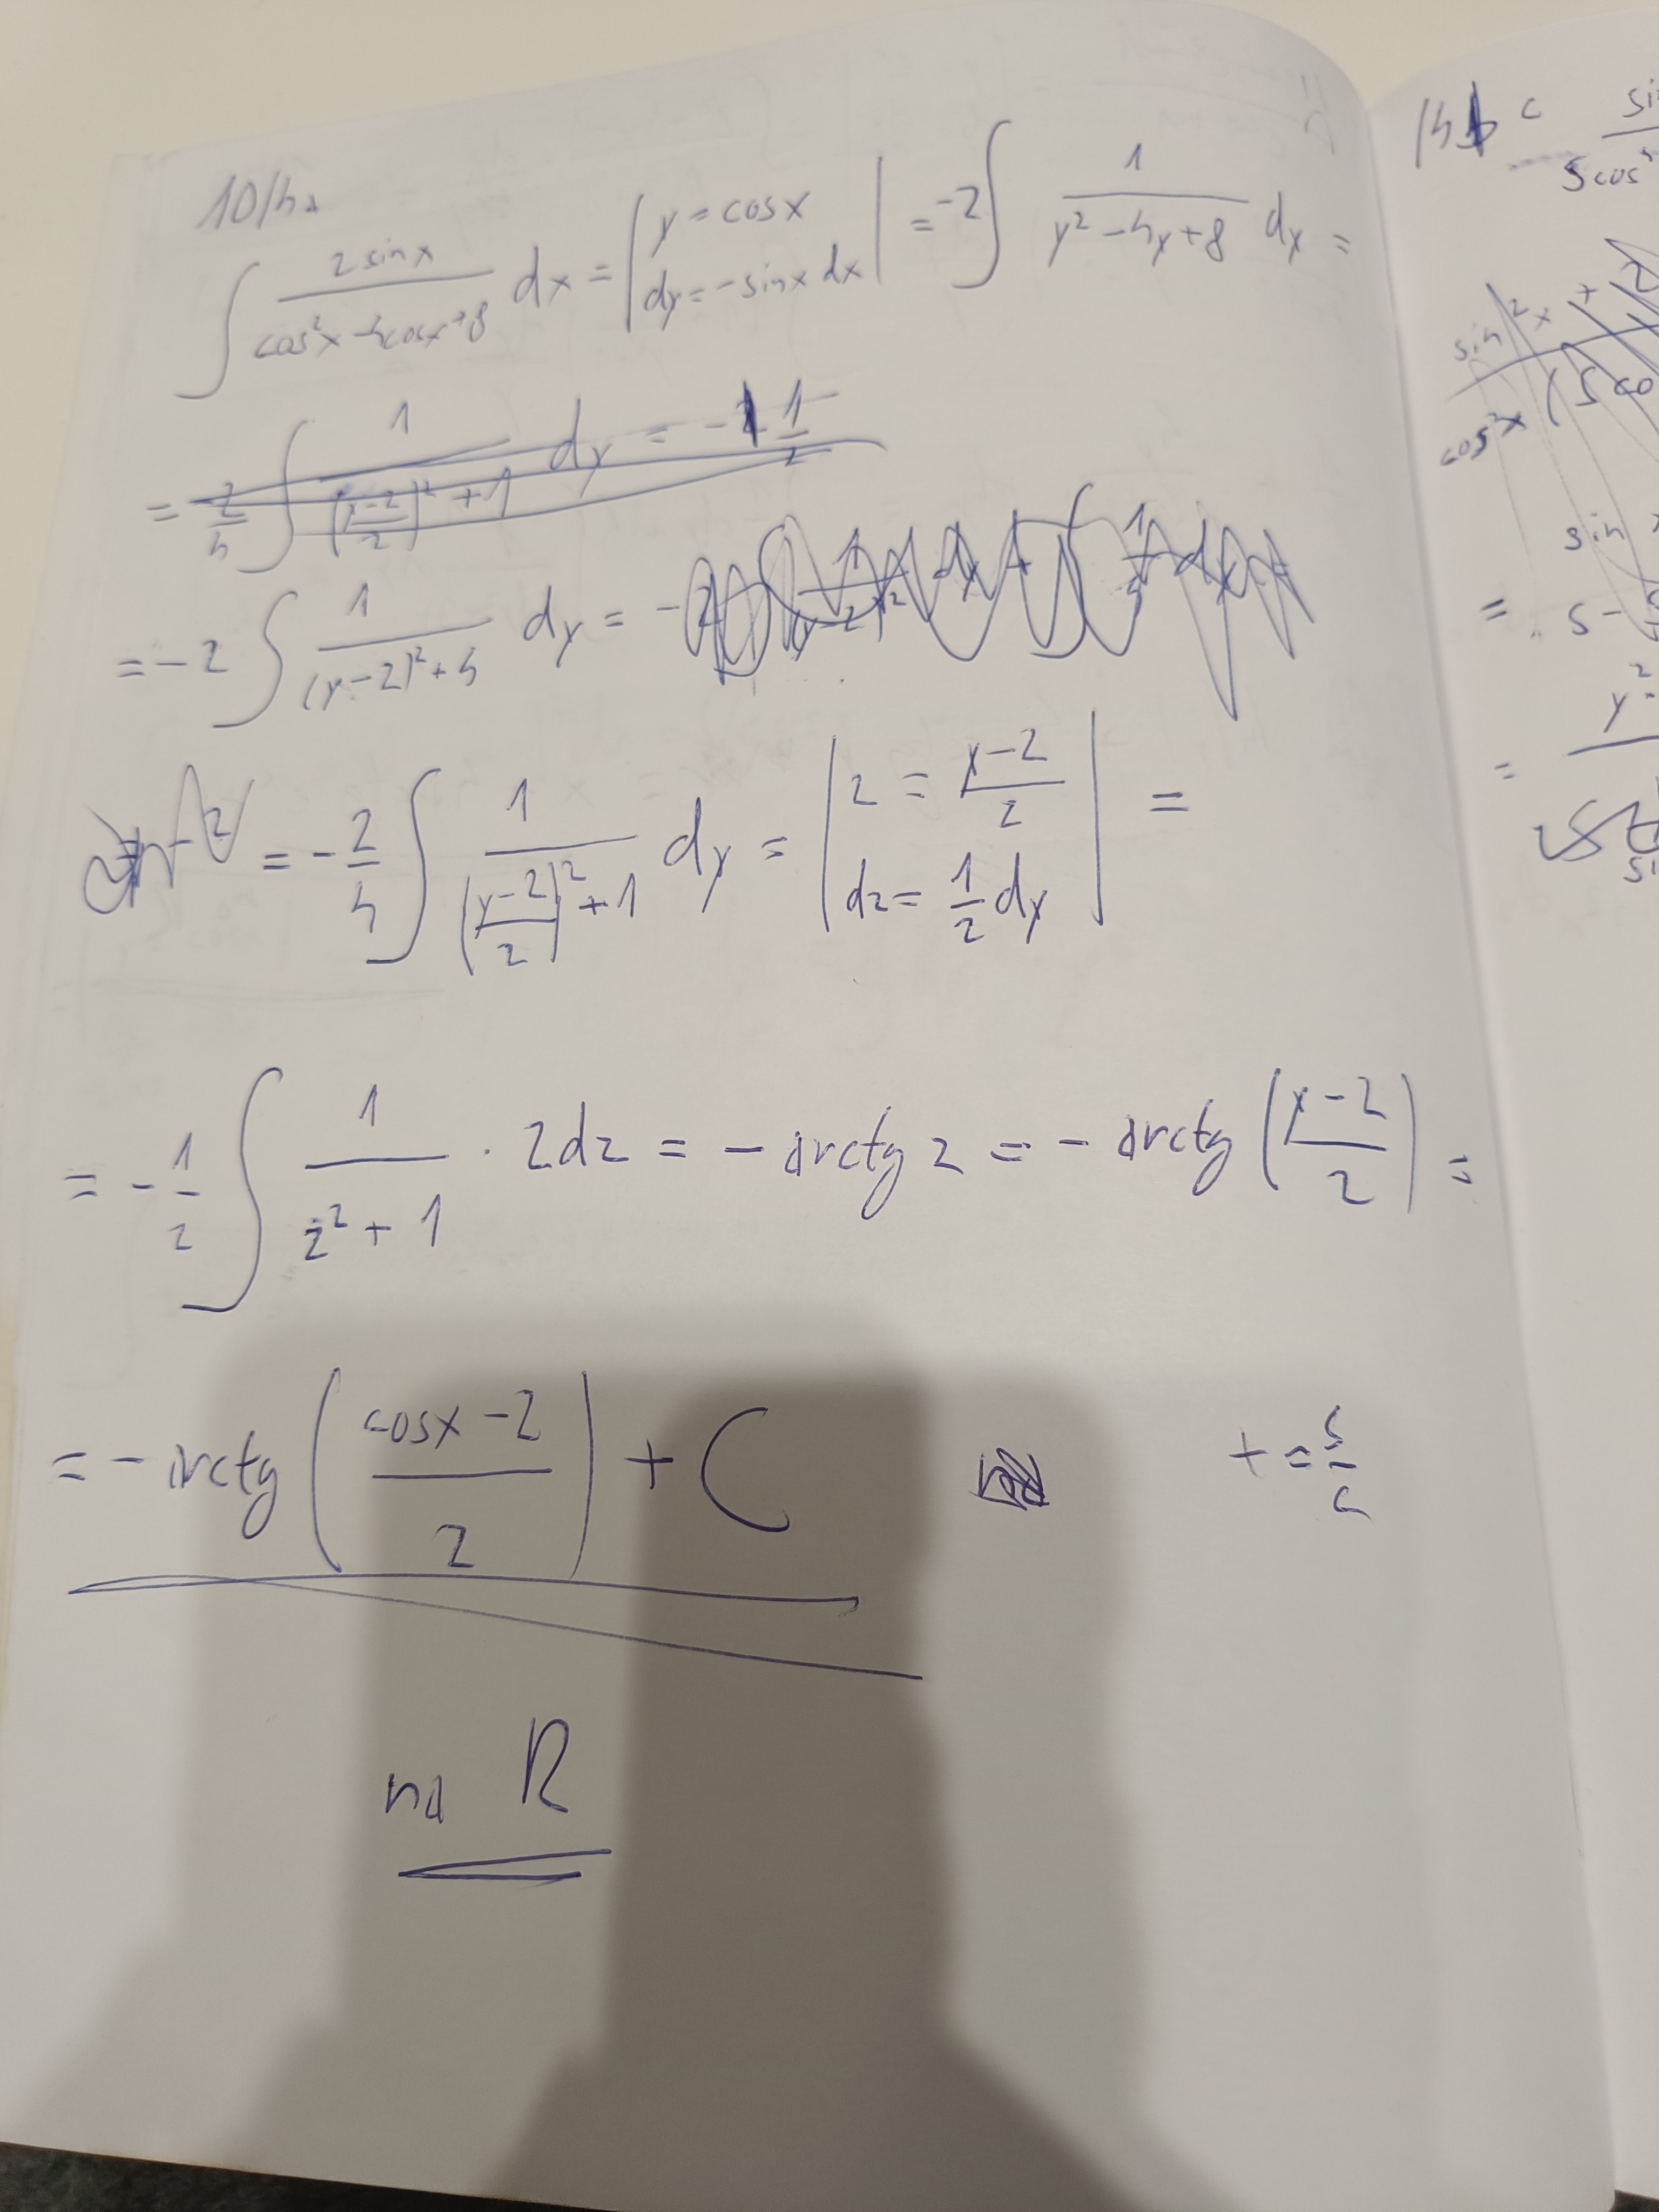 10/4a
∫ 2 sin x / (cos²x − 4cosx + 8) dx = | y = cosx, dy = −sinx dx | = −2 ∫ 1 / (y² − 4y + 8) dy =
= 2/4 ∫ 1 / (((y−2)/2)² + 1) dy = − 1/2
= −2 ∫ 1 / ((y−2)² + 4) dy = −2
= −2/4 ∫ 1 / (((y−2)/2)² + 1) dy = | z = (y−2)/2, dz = 1/2 dy | =
= −1/2 ∫ 1 / (z² + 1) · 2dz = − arctg z = − arctg ((y−2)/2) =
= − arctg ((cosx − 2)/2) + C t = s/c
na R
sin
5cos²
sin²x +
cos²x (5 co
sin
= 5 −
= y²